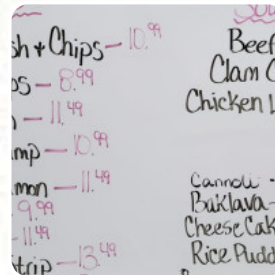 sh + Chips - 10.99
ps - 8.99
- 11.49
mp - 10.99
mon - 11.49
9.99
- 11.49
trip - 13.49
Sou
Beef
Clam C
Chicken
Cannoli -
Baklava -
Cheese Cak
Rice Pudd